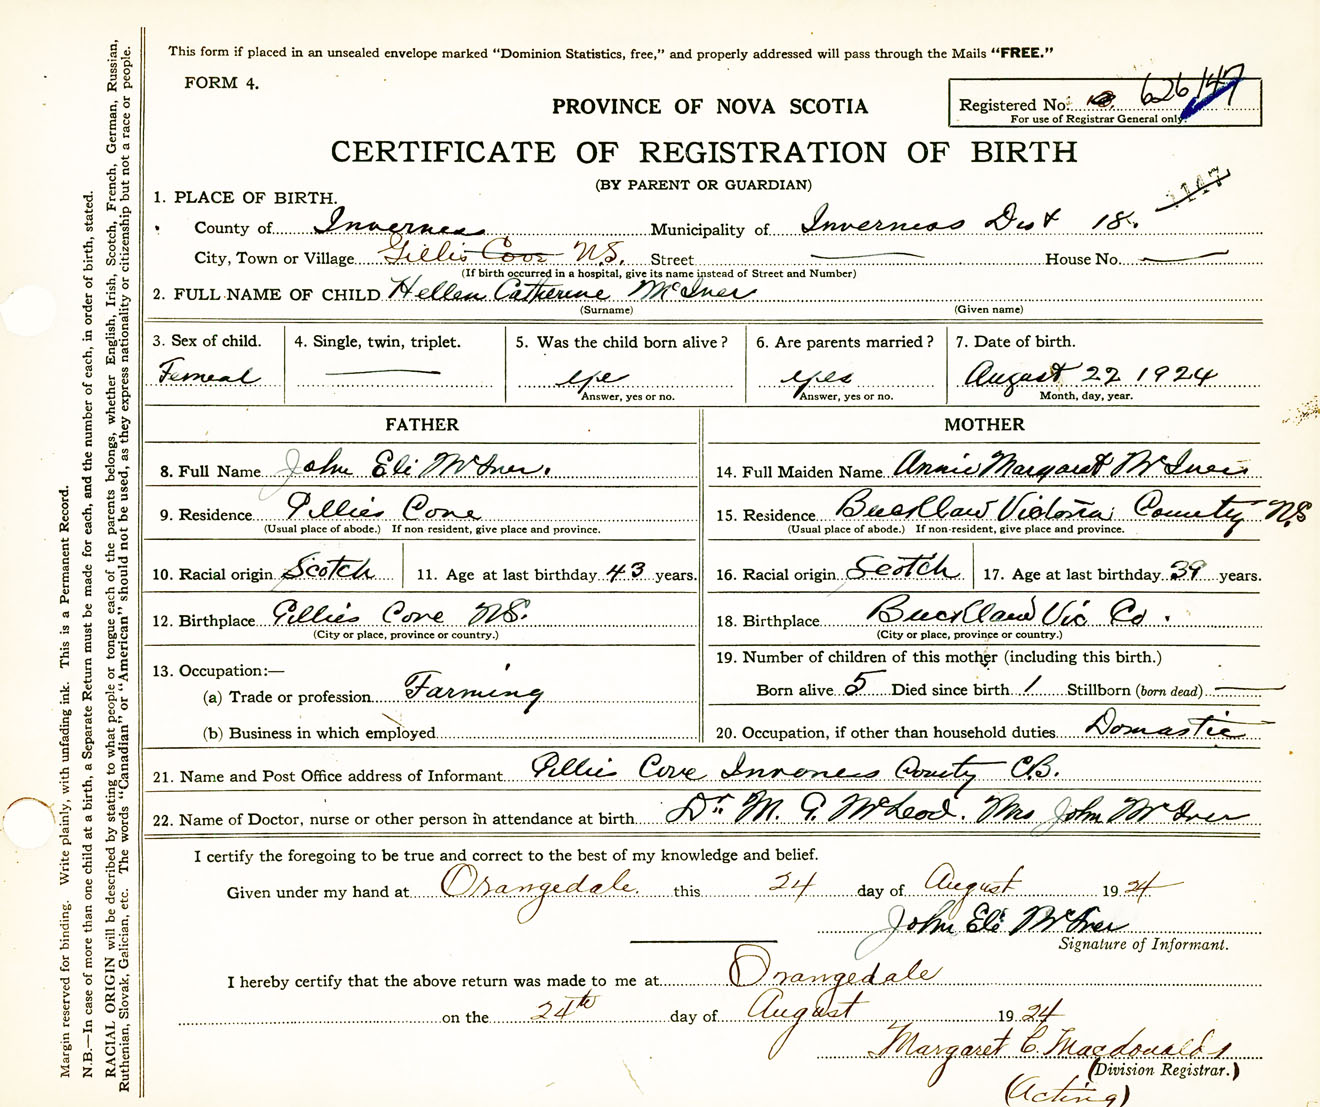 This form if placed in an unsealed envelope marked "Dominion Statistics, free," and properly addressed will pass through the Mails "FREE."
FORM 4.
PROVINCE OF NOVA SCOTIA
Registered No. 626147
For use of Registrar General only.
CERTIFICATE OF REGISTRATION OF BIRTH
(BY PARENT OR GUARDIAN)
1147
1. PLACE OF BIRTH.
County of Inverness Municipality of Inverness Dist 18.
City, Town or Village Gillis Cove N.S. Street — House No. —
(If birth occurred in a hospital, give its name instead of Street and Number)
2. FULL NAME OF CHILD Hellen Catherine McIver
(Surname) (Given name)
3. Sex of child. 4. Single, twin, triplet. 5. Was the child born alive? 6. Are parents married? 7. Date of birth.
Femeal — yes August 22 1924
Answer, yes or no. Answer, yes or no. Month, day, year.
FATHER
8. Full Name John Eli McIver.
9. Residence Gillies Cove
(Usual place of abode.) If non-resident, give place and province.
10. Racial origin Scotch 11. Age at last birthday 43 years.
12. Birthplace Gillies Cove N.S.
(City or place, province or country.)
13. Occupation:—
(a) Trade or profession Farming
(b) Business in which employed
MOTHER
14. Full Maiden Name Annie Margaret McIver
15. Residence Bucklaw Victoria County N.S
(Usual place of abode.) If non-resident, give place and province.
16. Racial origin Scotch 17. Age at last birthday 39 years.
18. Birthplace Bucklaw Vic Co.
(City or place, province or country.)
19. Number of children of this mother (including this birth.)
Born alive 5 Died since birth 1 Stillborn (born dead) —
20. Occupation, if other than household duties Domastic
21. Name and Post Office address of Informant Gillies Cove County C.B.
22. Name of Doctor, nurse or other person in attendance at birth Dr. M. G. McLeod. Mrs John McIver
I certify the foregoing to be true and correct to the best of my knowledge and belief.
Given under my hand at Orangedale this 24 day of August 1924
John Eli McIver
Signature of Informant.
I hereby certify that the above return was made to me at Orangedale
on the 24th day of August 1924
Margaret C. Macdonald
(Division Registrar.)
(Acting)
Margin reserved for binding. Write plainly, with unfading ink. This is a Permanent Record.
N.B.—In case of more than one child at a birth, a Separate Return must be made for each, and the number of each, in order of birth, stated.
RACIAL ORIGIN will be described by stating to what people or tongue each of the parents belongs, whether English, Irish, Scotch, French, German, Russian,
Ruthenian, Slovak, Galician, etc. The words "Canadian" or "American" should not be used, as they express nationality or citizenship but not a race or people.